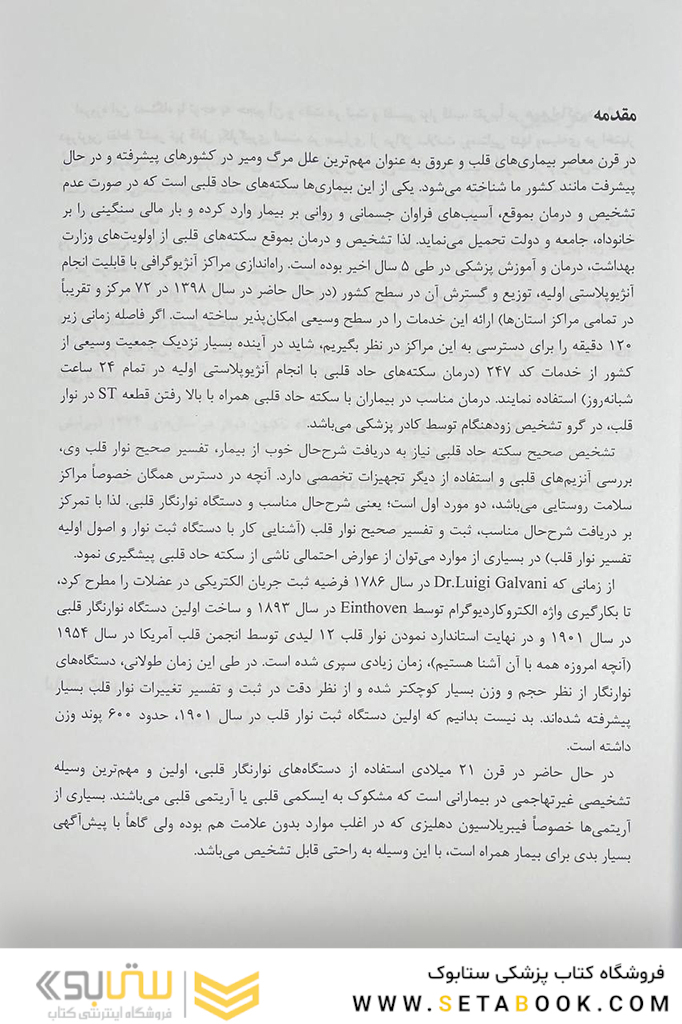 مقدمه
در قرن معاصر بیماری‌های قلب و عروق به عنوان مهم‌ترین علل مرگ ومیر در کشورهای پیشرفته و در حال
پیشرفت مانند کشور ما شناخته می‌شود. یکی از این بیماری‌ها سکته‌های حاد قلبی است که در صورت عدم
تشخیص و درمان بموقع، آسیب‌های فراوان جسمانی و روانی بر بیمار وارد کرده و بار مالی سنگینی را بر
خانوداه، جامعه و دولت تحمیل می‌نماید. لذا تشخیص و درمان بموقع سکته‌های قلبی از اولویت‌های وزارت
بهداشت، درمان و آموزش پزشکی در طی ۵ سال اخیر بوده است. راه‌اندازی مراکز آنژیوگرافی با قابلیت انجام
آنژیوپلاستی اولیه، توزیع و گسترش آن در سطح کشور (در حال حاضر در سال ۱۳۹۸ در ۷۲ مرکز و تقریباً
در تمامی مراکز استان‌ها) ارائه این خدمات را در سطح وسیعی امکان‌پذیر ساخته است. اگر فاصله زمانی زیر
۱۲۰ دقیقه را برای دسترسی به این مراکز در نظر بگیریم، شاید در آینده بسیار نزدیک جمعیت وسیعی از
کشور از خدمات کد ۲۴۷ (درمان سکته‌های حاد قلبی با انجام آنژیوپلاستی اولیه در تمام ۲۴ ساعت
شبانه‌روز) استفاده نمایند. درمان مناسب در بیماران با سکته حاد قلبی همراه با بالا رفتن قطعه ST در نوار
قلب، در گرو تشخیص زودهنگام توسط کادر پزشکی می‌باشد.
تشخیص صحیح سکته حاد قلبی نیاز به دریافت شرح‌حال خوب از بیمار، تفسیر صحیح نوار قلب وی،
بررسی آنزیم‌های قلبی و استفاده از دیگر تجهیزات تخصصی دارد. آنچه در دسترس همگان خصوصاً مراکز
سلامت روستایی می‌باشد، دو مورد اول است؛ یعنی شرح‌حال مناسب و دستگاه نوارنگار قلبی. لذا با تمرکز
بر دریافت شرح‌حال مناسب، ثبت و تفسیر صحیح نوار قلب (آشنایی کار با دستگاه ثبت نوار و اصول اولیه
تفسیر نوار قلب) در بسیاری از موارد می‌توان از عوارض احتمالی ناشی از سکته حاد قلبی پیشگیری نمود.
از زمانی که Dr.Luigi Galvani در سال ۱۷۸۶ فرضیه ثبت جریان الکتریکی در عضلات را مطرح کرد،
تا بکارگیری واژه الکتروکاردیوگرام توسط Einthoven در سال ۱۸۹۳ و ساخت اولین دستگاه نوارنگار قلبی
در سال ۱۹۰۱ و در نهایت استاندارد نمودن نوار قلب ۱۲ لیدی توسط انجمن قلب آمریکا در سال ۱۹۵۴
(آنچه امروزه همه با آن آشنا هستیم)، زمان زیادی سپری شده است. در طی این زمان طولانی، دستگاه‌های
نوارنگار از نظر حجم و وزن بسیار کوچکتر شده و از نظر دقت در ثبت و تفسیر تغییرات نوار قلب بسیار
پیشرفته شده‌اند. بد نیست بدانیم که اولین دستگاه ثبت نوار قلب در سال ۱۹۰۱، حدود ۶۰۰ پوند وزن
داشته است.
در حال حاضر در قرن ۲۱ میلادی استفاده از دستگاه‌های نوارنگار قلبی، اولین و مهم‌ترین وسیله
تشخیصی غیرتهاجمی در بیمارانی است که مشکوک به ایسکمی قلبی یا آریتمی قلبی می‌باشند. بسیاری از
آریتمی‌ها خصوصاً فیبریلاسیون دهلیزی که در اغلب موارد بدون علامت هم بوده ولی گاهاً با پیش‌آگهی
بسیار بدی برای بیمار همراه است، با این وسیله به راحتی قابل تشخیص می‌باشد.
فروشگاه کتاب پزشکی ستابوک
WWW.SETABOOK.COM
ستابوک
فروشگاه اینترنتی کتاب